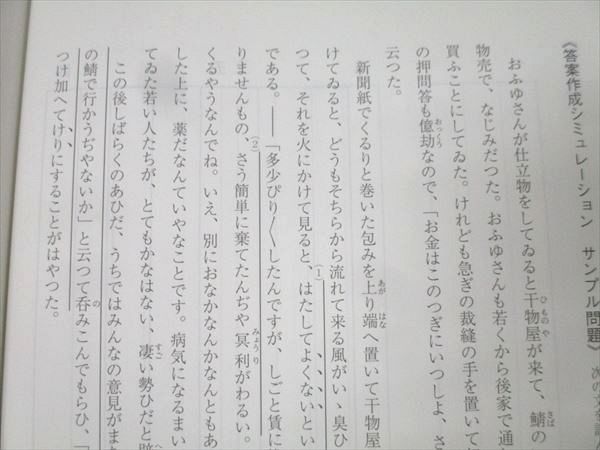 《答案作成シミュレーション　サンプル問題》
次の文を読
おふゆさんが仕立物をしてゐると干物屋が来て、鯖の
物売で、なじみだつた。おふゆさんも若くから後家で通
買ふことにしてゐた。けれども急ぎの裁縫の手を置いて
の押問答も億劫なので、「お金はこのつぎにいつしよ、さ
云つた。
新聞紙でくるりと巻いた包みを上り端へ置いて干物屋
けてゐると、どうもそちらから流れて来る風がいゝ臭ひ
つて、それを火にかけて見ると、はたしてよくないとい
である。――「多少ぴり〳〵したんですが、しごと賃に
りませんもの、さう簡単に棄てたんぢや冥利がわるい。
くるやうなんでね。いえ、別におなかなんかなんともあ
した上に、薬だなんていやなことです。病気になるまい
てゐた若い人たちが、とてもかなはない、凄い勢ひだと
この後しばらくのあひだ、うちではみんなの意見がま
の鯖で行かうぢやないか」と云つて呑みこんでもらひ、「
つけ加へてけりにすることがはやつた。